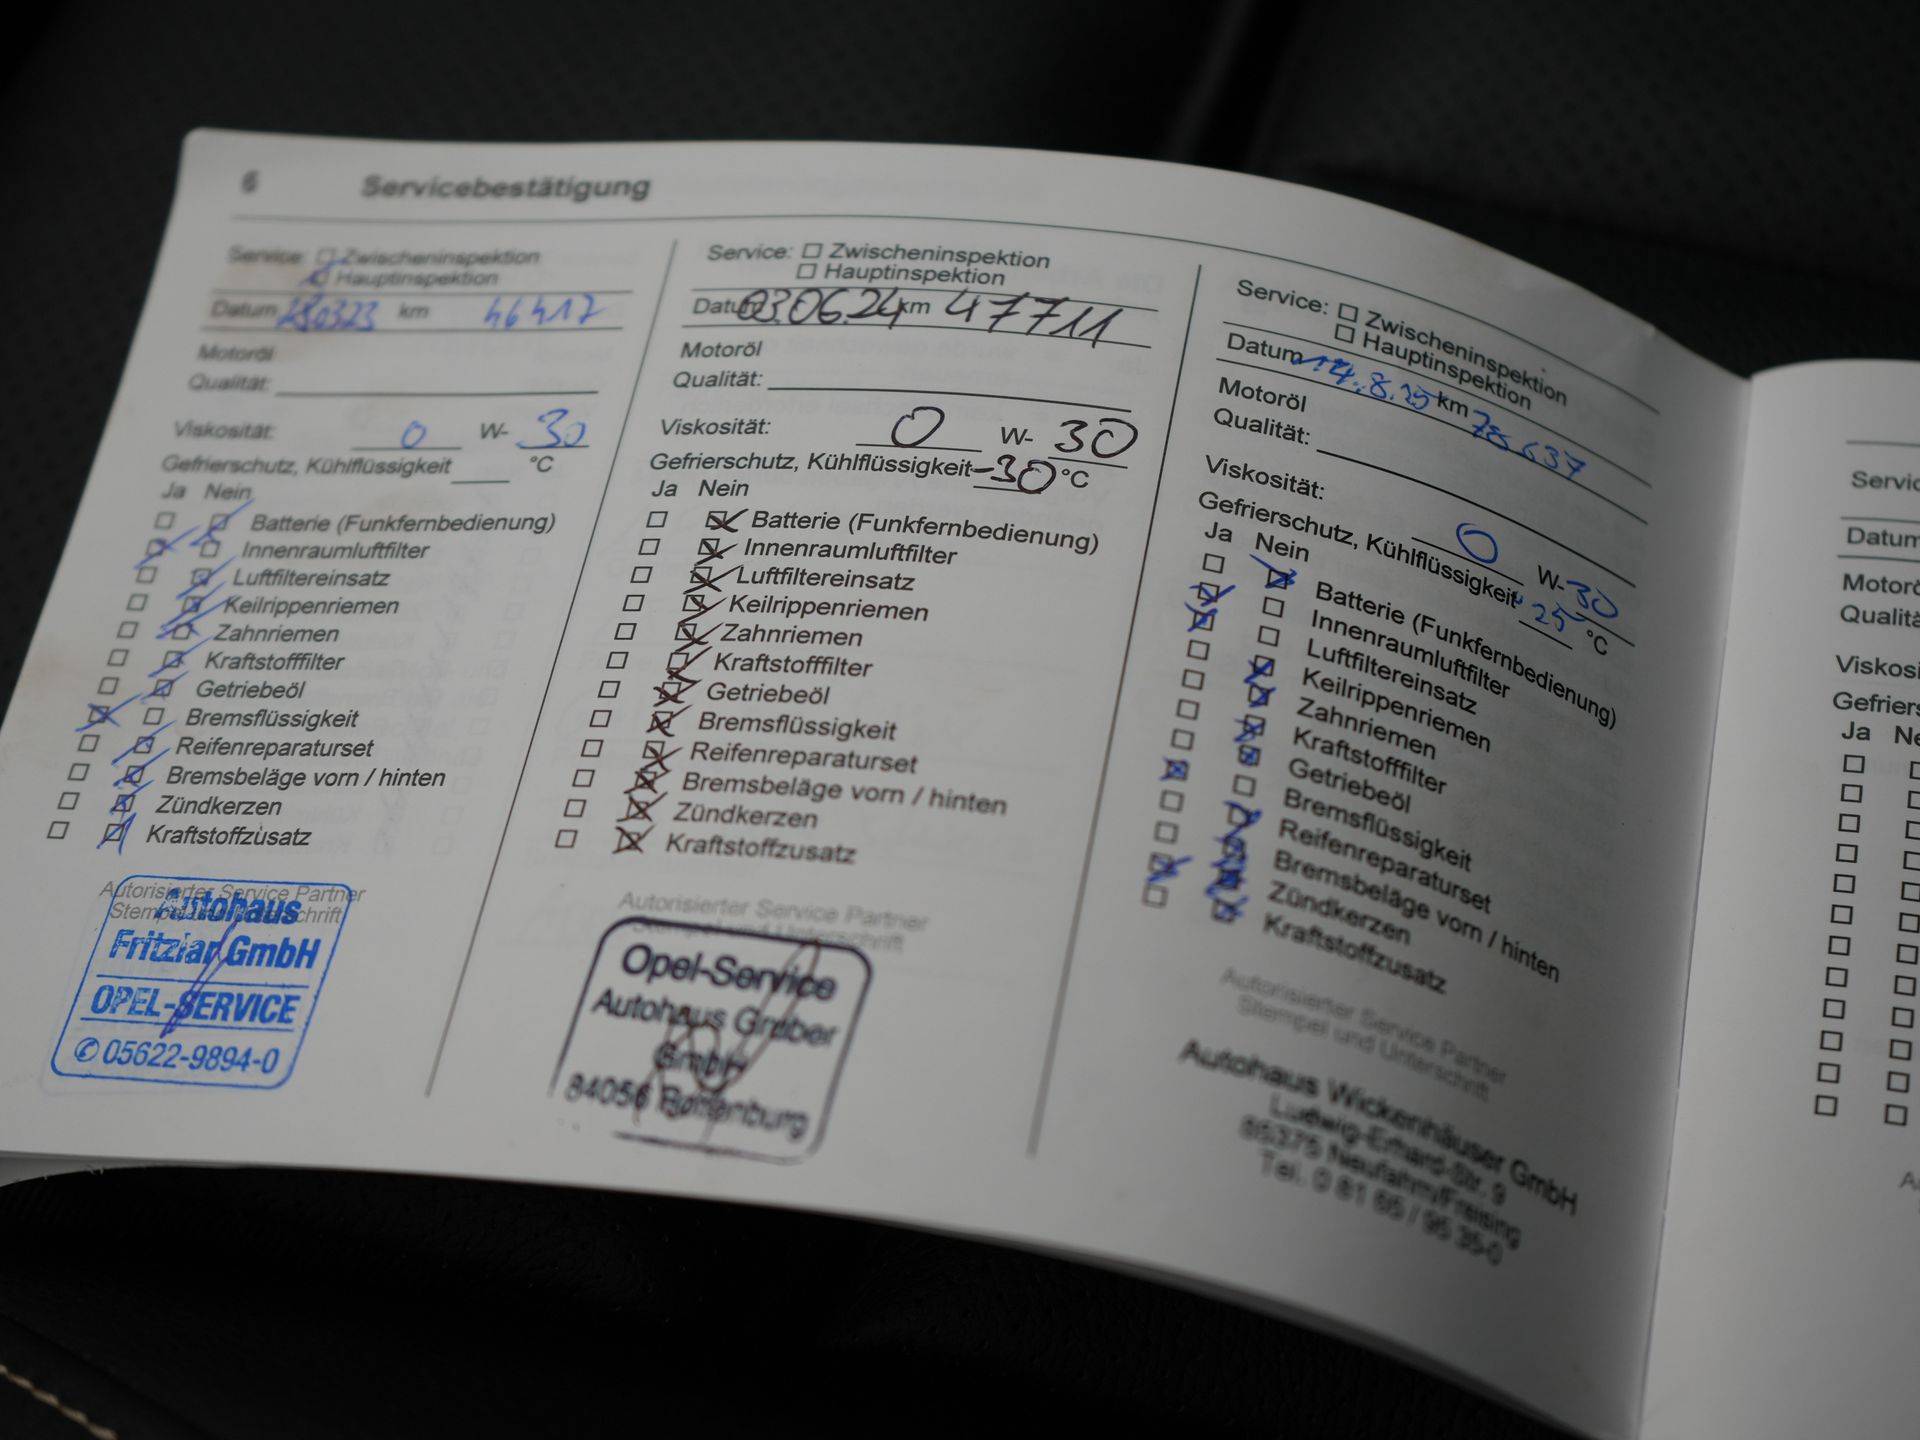 6 Servicebestätigung
Service: Zwischeninspektion
Hauptinspektion
Datum 280323 km 46417
Motoröl
Qualität:
Viskosität: 0 W- 30
Gefrierschutz, Kühlflüssigkeit °C
Ja Nein
Batterie (Funkfernbedienung)
Innenraumluftfilter
Luftfiltereinsatz
Keilrippenriemen
Zahnriemen
Kraftstofffilter
Getriebeöl
Bremsflüssigkeit
Reifenreparaturset
Bremsbeläge vorn / hinten
Zündkerzen
Kraftstoffzusatz
Autorisierter Service Partner
Stempel und Unterschrift
Autohaus
Fritzlar GmbH
OPEL-SERVICE
✆ 05622-9894-0
Service: Zwischeninspektion
Hauptinspektion
Datum 03.06.24 km 47711
Motoröl
Qualität:
Viskosität: 0 W- 30
Gefrierschutz, Kühlflüssigkeit -30 °C
Ja Nein
Batterie (Funkfernbedienung)
Innenraumluftfilter
Luftfiltereinsatz
Keilrippenriemen
Zahnriemen
Kraftstofffilter
Getriebeöl
Bremsflüssigkeit
Reifenreparaturset
Bremsbeläge vorn / hinten
Zündkerzen
Kraftstoffzusatz
Autorisierter Service Partner
Stempel und Unterschrift
Opel-Service
Autohaus Gruber
GmbH
84056 Rottenburg
Service: Zwischeninspektion
Hauptinspektion
Datum 14.8.25 km 78637
Motoröl
Qualität:
Viskosität: 0 W- 30
Gefrierschutz, Kühlflüssigkeit -25 °C
Ja Nein
Batterie (Funkfernbedienung)
Innenraumluftfilter
Luftfiltereinsatz
Keilrippenriemen
Zahnriemen
Kraftstofffilter
Getriebeöl
Bremsflüssigkeit
Reifenreparaturset
Bremsbeläge vorn / hinten
Zündkerzen
Kraftstoffzusatz
Autorisierter Service Partner
Stempel und Unterschrift
Autohaus Wickenhäuser GmbH
Ludwig-Erhard-Str. 9
85375 Neufahrn/Freising
Tel. 0 81 65 / 95 35-0
Servic
Datum
Motorö
Qualitä
Viskosi
Gefriers
Ja Ne